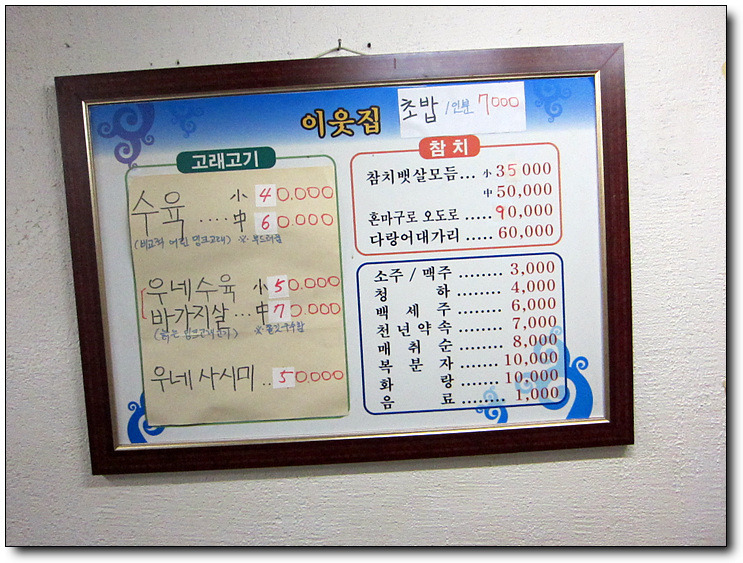 이웃집
초밥 1인분 7000
고래고기
수육 小 40.000
.... 中 60.000
(비교적 어린 밍크고래) ※ 부드러움
우네수육 小 50.000
바가지살... 中 70.000
우네 사시미 .. 50.000
참 치
참치뱃살모듬... 小 35 000
中 50,000
혼마구로 오도로 ..... 90,000
다랑어대가리 ..... 60,000
소주 / 맥주 ........ 3,000
청 하 ........ 4,000
백 세 주 ........ 6,000
천년약속 ........ 7,000
매 취 순 ........ 8,000
복 분 자 ........ 10,000
화 랑 ........ 10,000
음 료 ........ 1,000